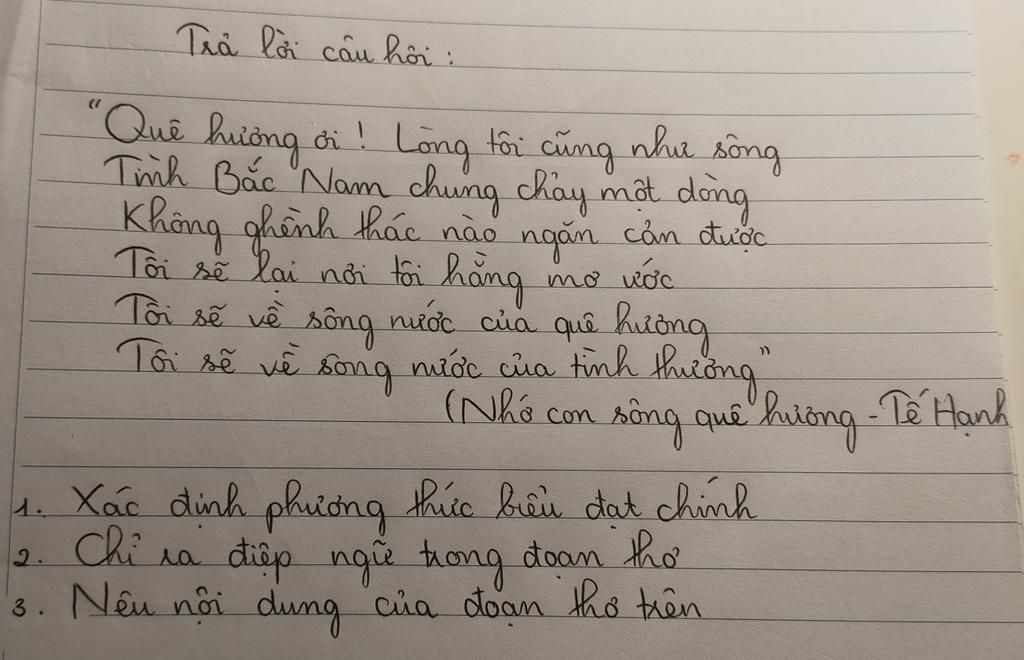 Trả lời câu hỏi :
"Quê hương ơi ! Lòng tôi cũng như sông
Tình Bắc Nam chung chảy một dòng
Không ghềnh thác nào ngăn cản được
Tôi sẽ lại nơi tôi hằng mơ ước
Tôi sẽ về sông nước của quê hương
Tôi sẽ về sông nước của tình thương"
(Nhớ con sông quê hương - Tế Hạnh
1. Xác định phương thức biểu đạt chính
2. Chỉ ra điệp ngữ trong đoạn thơ
3. Nêu nội dung của đoạn thơ trên